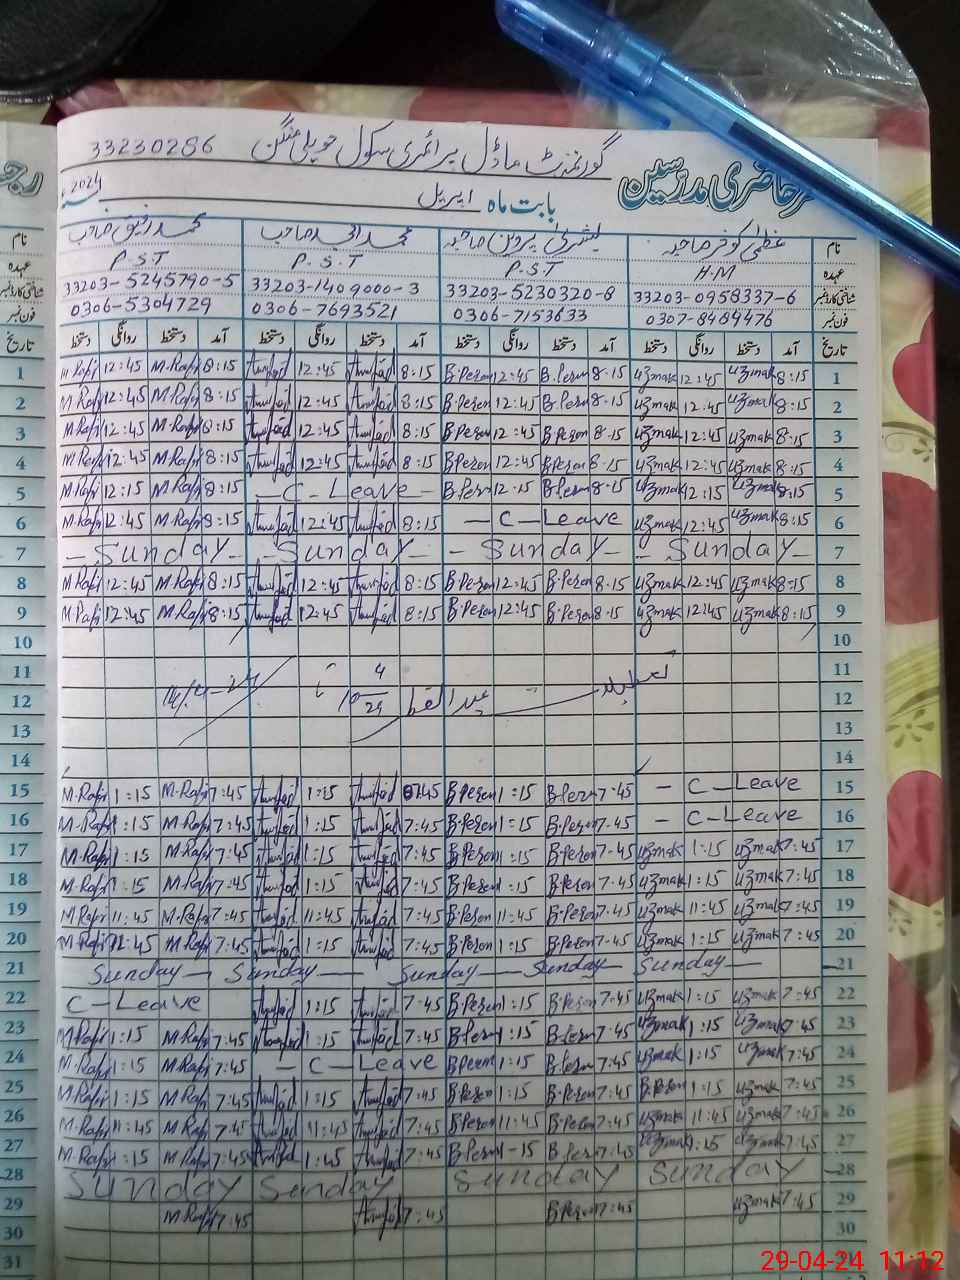 گورنمنٹ ماڈل پرائمری سکول حویلی منگن 33230286
رجسٹر حاضری مدرسین بابت ماہ اپریل 2024
نام عظمیٰ کوثر صاحبہ بشریٰ پروین صاحبہ محمد امجد صاحب محمد رفیق صاحب نام
عہدہ H.M P.S.T P.S.T P.S.T عہدہ
شناختی کارڈ نمبر 33203-0958337-6 33203-5230320-8 33203-1409000-3 33203-5245790-5
فون نمبر 0307-8489476 0306-7153633 0306-7693521 0306-5304729 فون نمبر
تاریخ آمد دستخط روانگی دستخط آمد دستخط روانگی دستخط آمد دستخط روانگی دستخط آمد دستخط روانگی دستخط تاریخ
1 M.Rafi 12:45 M.Rafi 8:15 Amjad 12:45 Amjad 8:15 B.Perven 12:45 B.Perven 8:15 uzmak 12:45 uzmak 8:15 1
2 M.Rafi 12:45 M.Rafi 8:15 Amjad 12:45 Amjad 8:15 B.Perven 12:45 B.Perven 8:15 uzmak 12:45 uzmak 8:15 2
3 M.Rafi 12:45 M.Rafi 8:15 Amjad 12:45 Amjad 8:15 B.Perven 12:45 B.Perven 8:15 uzmak 12:45 uzmak 8:15 3
4 M.Rafi 12:45 M.Rafi 8:15 Amjad 12:45 Amjad 8:15 B.Perven 12:45 B.Perven 8:15 uzmak 12:45 uzmak 8:15 4
5 M.Rafi 12:15 M.Rafi 8:15 -C-Leave- B.Perven 12:15 B.Perven 8:15 uzmak 12:15 uzmak 8:15 5
6 M.Rafi 12:45 M.Rafi 8:15 Amjad 12:45 Amjad 8:15 -C-Leave uzmak 12:45 uzmak 8:15 6
7 -Sunday- -Sunday- -Sunday- -Sunday- 7
8 M.Rafi 12:45 M.Rafi 8:15 Amjad 12:45 Amjad 8:15 B.Perven 12:45 B.Perven 8:15 uzmak 12:45 uzmak 8:15 8
9 M.Rafi 12:45 M.Rafi 8:15 Amjad 12:45 Amjad 8:15 B.Perven 12:45 B.Perven 8:15 uzmak 12:45 uzmak 8:15 9
10 10
11 11
تعطیلات عید الفطر
12 12
13 13
14 14
15 M.Rafi 1:15 M.Rafi 7:45 Amjad 1:15 Amjad 7:45 B.Perven 1:15 B.Perven 7:45 - C-Leave 15
16 M.Rafi 1:15 M.Rafi 7:45 Amjad 1:15 Amjad 7:45 B.Perven 1:15 B.Perven 7:45 - C-Leave 16
17 M.Rafi 1:15 M.Rafi 7:45 Amjad 1:15 Amjad 7:45 B.Perven 1:15 B.Perven 7:45 uzmak 1:15 uzmak 7:45 17
18 M.Rafi 1:15 M.Rafi 7:45 Amjad 1:15 Amjad 7:45 B.Perven 1:15 B.Perven 7:45 uzmak 1:15 uzmak 7:45 18
19 M.Rafi 11:45 M.Rafi 7:45 Amjad 11:45 Amjad 7:45 B.Perven 11:45 B.Perven 7:45 uzmak 11:45 uzmak 7:45 19
20 M.Rafi 11:45 M.Rafi 7:45 Amjad 1:15 Amjad 7:45 B.Perven 1:15 B.Perven 7:45 uzmak 1:15 uzmak 7:45 20
21 Sunday- Sunday- Sunday- Sunday- Sunday- 21
22 C-Leave Amjad 1:15 Amjad 7:45 B.Perven 1:15 B.Perven 7:45 uzmak 1:15 uzmak 7:45 22
23 M.Rafi 1:15 M.Rafi 7:45 Amjad 1:15 Amjad 7:45 B.Perven 1:15 B.Perven 7:45 uzmak 1:15 uzmak 7:45 23
24 M.Rafi 1:15 M.Rafi 7:45 -C-Leave B.Perven 1:15 B.Perven 7:45 uzmak 1:15 uzmak 7:45 24
25 M.Rafi 1:15 M.Rafi 7:45 Amjad 1:15 Amjad 7:45 B.Perven 1:15 B.Perven 7:45 B.Perven 1:15 uzmak 7:45 25
26 M.Rafi 11:45 M.Rafi 7:45 Amjad 11:45 Amjad 7:45 B.Perven 11:45 B.Perven 7:45 uzmak 11:45 uzmak 7:45 26
27 M.Rafi 1:15 M.Rafi 7:45 Amjad 1:45 Amjad 7:45 B.Perven 1-15 B.Perven 7:45 uzmak 1:15 uzmak 7:45 27
28 Sunday Sunday Sunday Sunday 28
29 M.Rafi 7:45 Amjad 7:45 B.Perven 7:45 uzmak 7:45 29
30 30
31
29-04-24 11:12